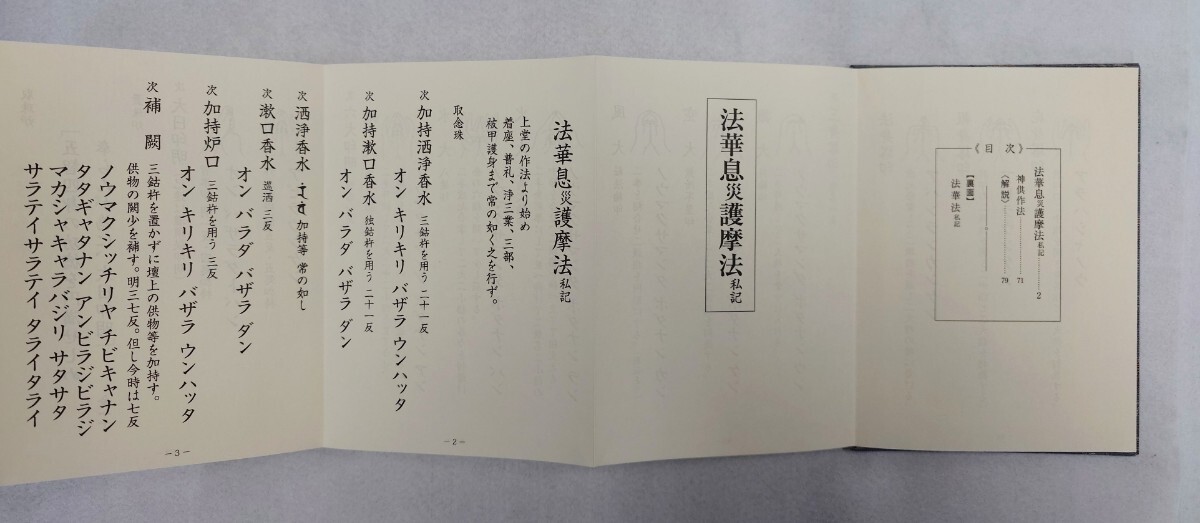 《目次》
法華息災護摩法 私記………………2
神供作法………………71
〈解説〉………………79
【裏面】
法華法 私記
法華息災護摩法 私記
法華息災護摩法 私記
上堂の作法より始め
着座、普礼、浄三業、三部、
被甲護身まで常の如く之を行ず。
取念珠
次 加持洒浄香水 三鈷杵を用う 二十一反
オン キリキリ バザラ ウンハッタ
次 加持漱口香水 独鈷杵を用う 二十一反
オン バラダ バザラ ダン
－2－
次 洒浄香水 加持等 常の如し
次 漱口香水 巡洒 三反
オン バラダ バザラ ダン
次 加持炉口 三鈷杵を用う 三反
オン キリキリ バザラ ウンハッタ
次 補闕 三鈷杵を置かずに壇上の供物等を加持す。
供物の闕少を補す。明三七反。但し今時は七反
ノウマクシッチリヤ チビキャナン
タタギャタナン アンビラジビラジ
マカシャキャラバジリ サタサタ
サラテイサラテイ タライタライ
－3－